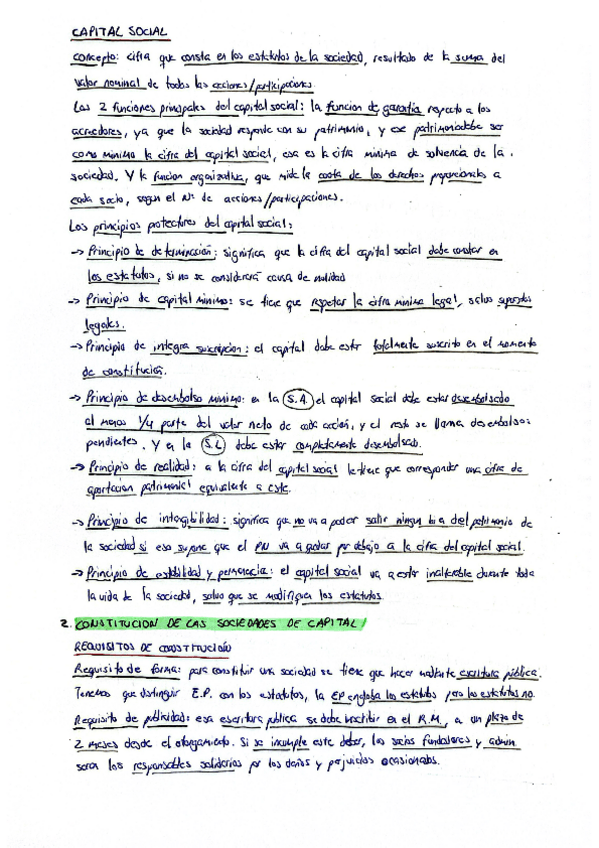 CAPITAL SOCIAL
Concepto: cifra que consta en los estatutos de la sociedad, resultado de la suma del
valor nominal de todas las acciones/participaciones.
Las 2 funciones principales del capital social: la función de garantía respecto a los
acreedores, ya que la sociedad responde con su patrimonio, y ese patrimonio debe ser
como mínimo la cifra del capital social, esa es la cifra mínima de solvencia de la
sociedad. Y la función organizativa, que mide la cuota de los derechos proporcionales a
cada socio, según el Nº de acciones/participaciones.
Los principios protectores del capital social:
-> Principio de determinación: significa que la cifra del capital social debe constar en
los estatutos, si no se considerará causa de nulidad
-> Principio de capital mínimo: se tiene que respetar la cifra mínima legal, salvo supuestos
legales.
-> Principio de integra suscripción: el capital debe estar totalmente suscrito en el momento
de constitución.
-> Principio de desembolso mínimo: en la S.A. el capital social debe estar desembolsado
al menos 1/4 parte del valor neto de cada acción, y el resto se llama desembolsos
pendientes. Y en la S.L debe estar completamente desembolsado.
-> Principio de realidad: a la cifra del capital social le tiene que corresponder una cifra de
aportación patrimonial equivalente a este.
-> Principio de intangibilidad: significa que no va a poder salir ningun bien del patrimonio de
la sociedad si eso supone que el PN va a quedar por debajo a la cifra del capital social.
-> Principio de estabilidad y permanencia: el capital social va a estar inalterable durante toda
la vida de la sociedad, salvo que se modifiquen los estatutos.
2. CONSTITUCION DE LAS SOCIEDADES DE CAPITAL
REQUISITOS DE CONSTITUCIÓN
Requisito de forma: para constituir una sociedad se tiene que hacer mediante escritura pública.
Tenemos que distinguir E.P. con los estatutos, la EP engloba los estatutos pero los estatutos no.
Requisito de publicidad: esa escritura pública se debe inscribir en el R.M, a un plazo de
2 meses desde el otorgamiento. Si se incumple este deber, los socios fundadores y admin
seran los responsables solidarios por los daños y perjuicios ocasionados.